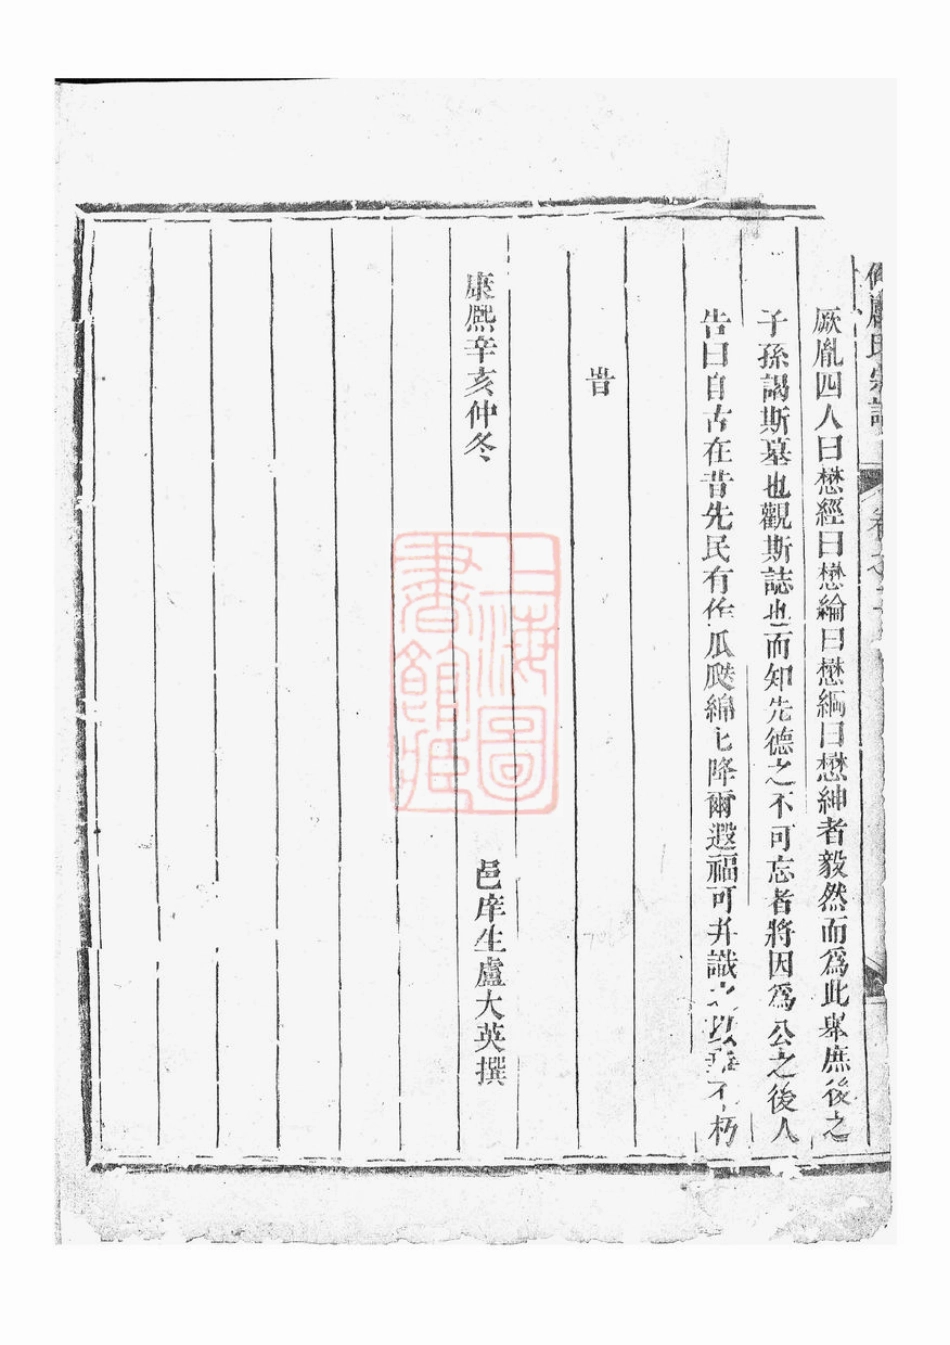 盧氏宗譜 卷之
厥胤四人曰懋經曰懋綸曰懋綱曰懋紳者毅然而為此舉庶後之
子孫謁斯墓也觀斯誌也而知先德之不可忘者將因為公之後人
告曰自古在昔先民有作瓜瓞綿匕降爾遐福可并識之以垂不朽
旹
康熙辛亥仲冬 邑庠生盧大英撰
上海圖
書館藏